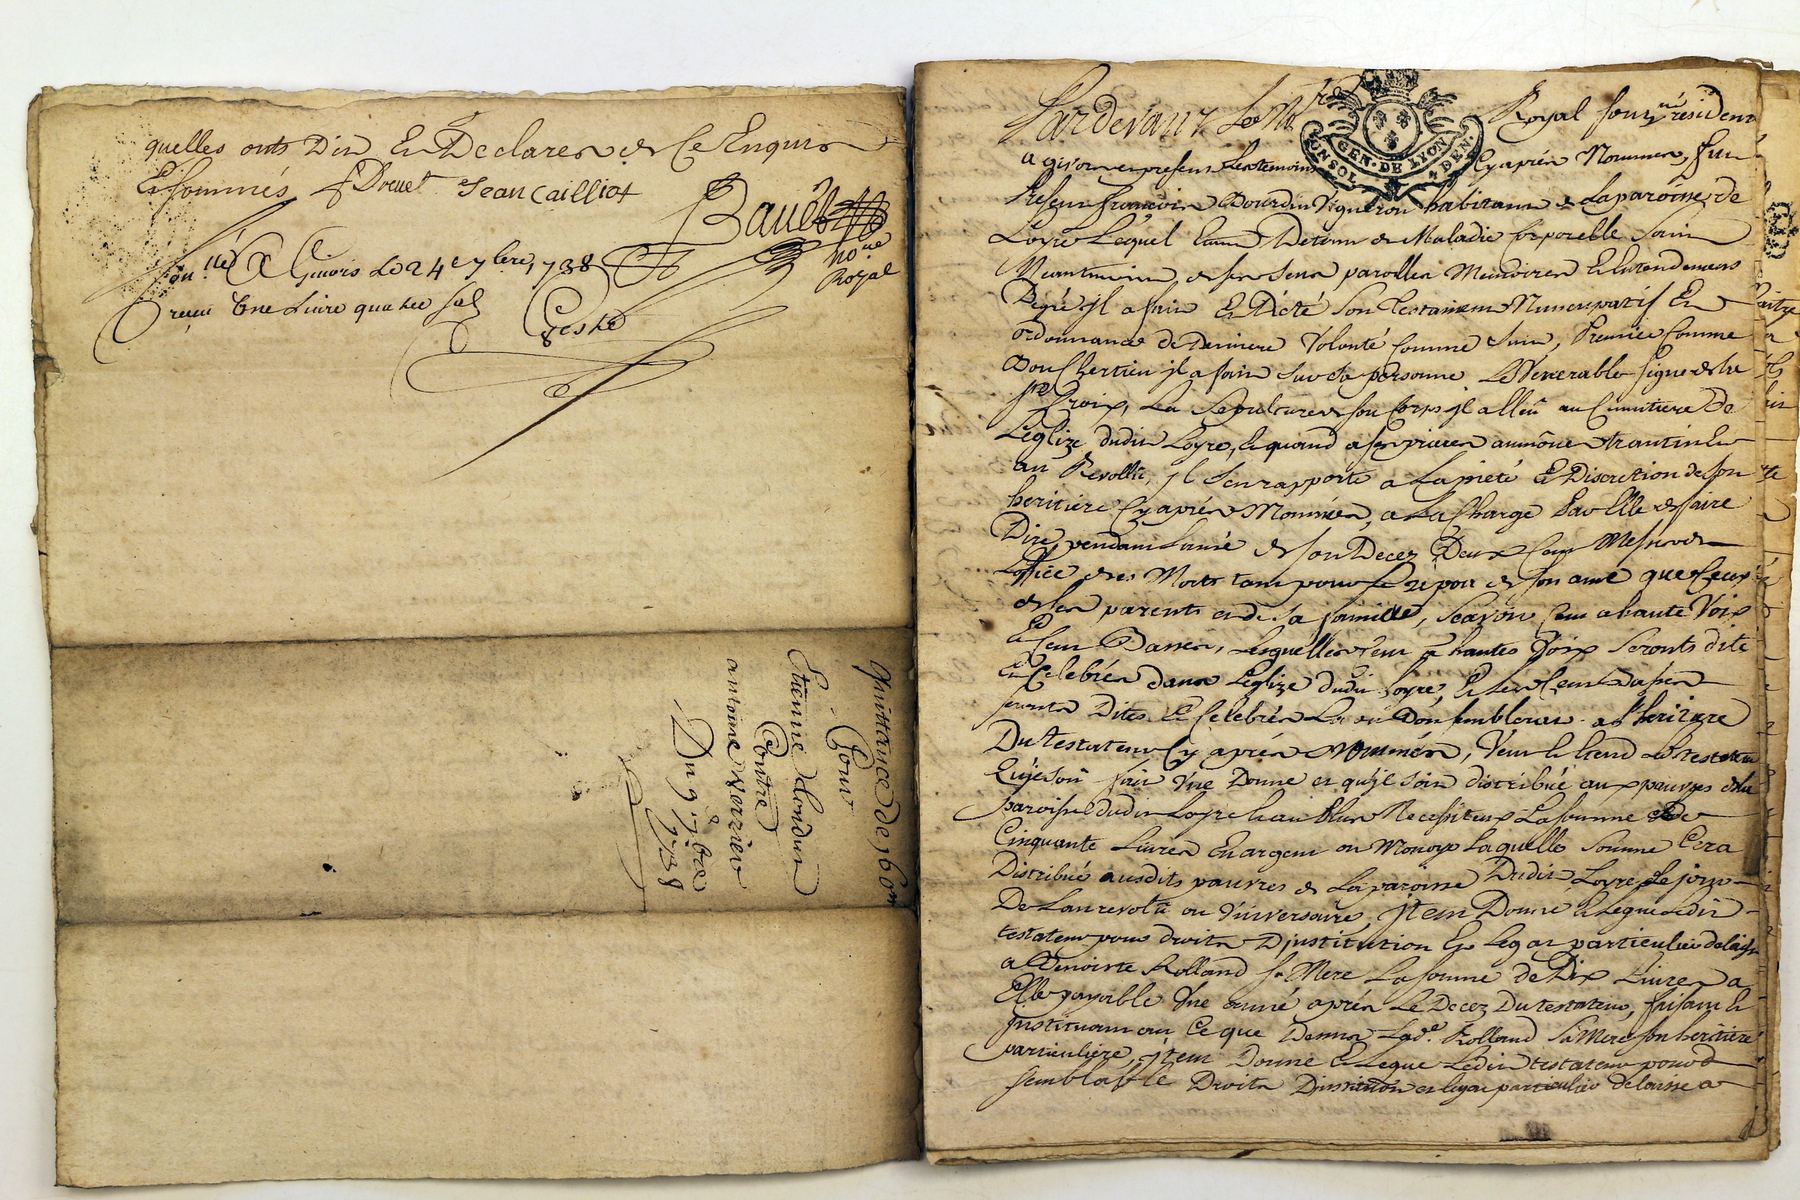 quelles onts Dit En Declarer de Ce Enquis
Et sommés f Douet Jean Cailliot
Bauët
no.re
Royal
Con.llé A Givors Le 24e 7bre 1738
reçeu Une Livre quatre sol
Geste
Quittance de 160lt
Pour
Etienne
Contre
antoine Verzier
Du 9e 7bre
1738
Pardevant Le No.re Royal soub.né résident
GEN. DE LYON
UN SOL 4 DEN.
a givors et presens Les temoins Cy aprés Nommes, fut
Présent françois Bourdin Vigneron habitant de La paroisse de
Loyre Lequel Etant Detenu de Maladie Corporelle Sain
Neantmoins de ses Sens parolles Memoires Et Entendement
De gré il a fait Et Dicté Son Testament Nuncupatif Et
ordonnance de Derniere Volonté Comme Suit, Premier Comme
Bon Chertien il a fait sur sa personne Le Venerable signe de la
Ste Croix, La Sepulture de son Corps il a Esleu au Cimitiere De
Leglize dudit Loyre, Et quand a ses prieres aumône trantin Et
an Revollu, il s'en rapporte a La pieté Et Discretion de son
heritiere Cy aprés Nommée, a La Charge Par Elle de faire
Dire pendant Lanné de son Decez Deux Cent Messes de
Loffice des Morts tant pour Le repos de son ame que Ceux
de ses parents et de sa famille, Scavoir Cent a haute Voix
Et Cent Basses, Lesquelles Cent a hautes Voix Seronts dite
Et Celebrés dans Leglize dudit Loyre, Et Les Cent basses
seronts Dites Et Celebrés La ou bon semblera a l'heritiere
Du testateur Cy aprés Nommée, Veut Et Entend Le testateur
quil soit fait Une Donne et qu'il soit distribué aux pauvres de la
paroisse dudit Loyre Les plus Necessiteux La somme De
Cinquante Livres En argent ou Monoye Laquelle Somme Cera
Distribué ausdits pauvres de La paroisse Dudit Loyre Le jour
De Lan revolu ou Universaire, Item Donne Et Legue Ledit
testateur pour droits D'institution Et Legat particulier delaisse
a Benoiste Rolland sa Mere La somme de Dix Livres a
Elle payable Une anné aprés Le Decez Du testateur, faisant Et
Instituant en Ce que Dessus Lad.e Rolland Sa Mere son heritiere
particuliere, Item Donne Et Legue Ledit testateur pour
semblable Droits Dinstitution et Legat particulier delaisse a